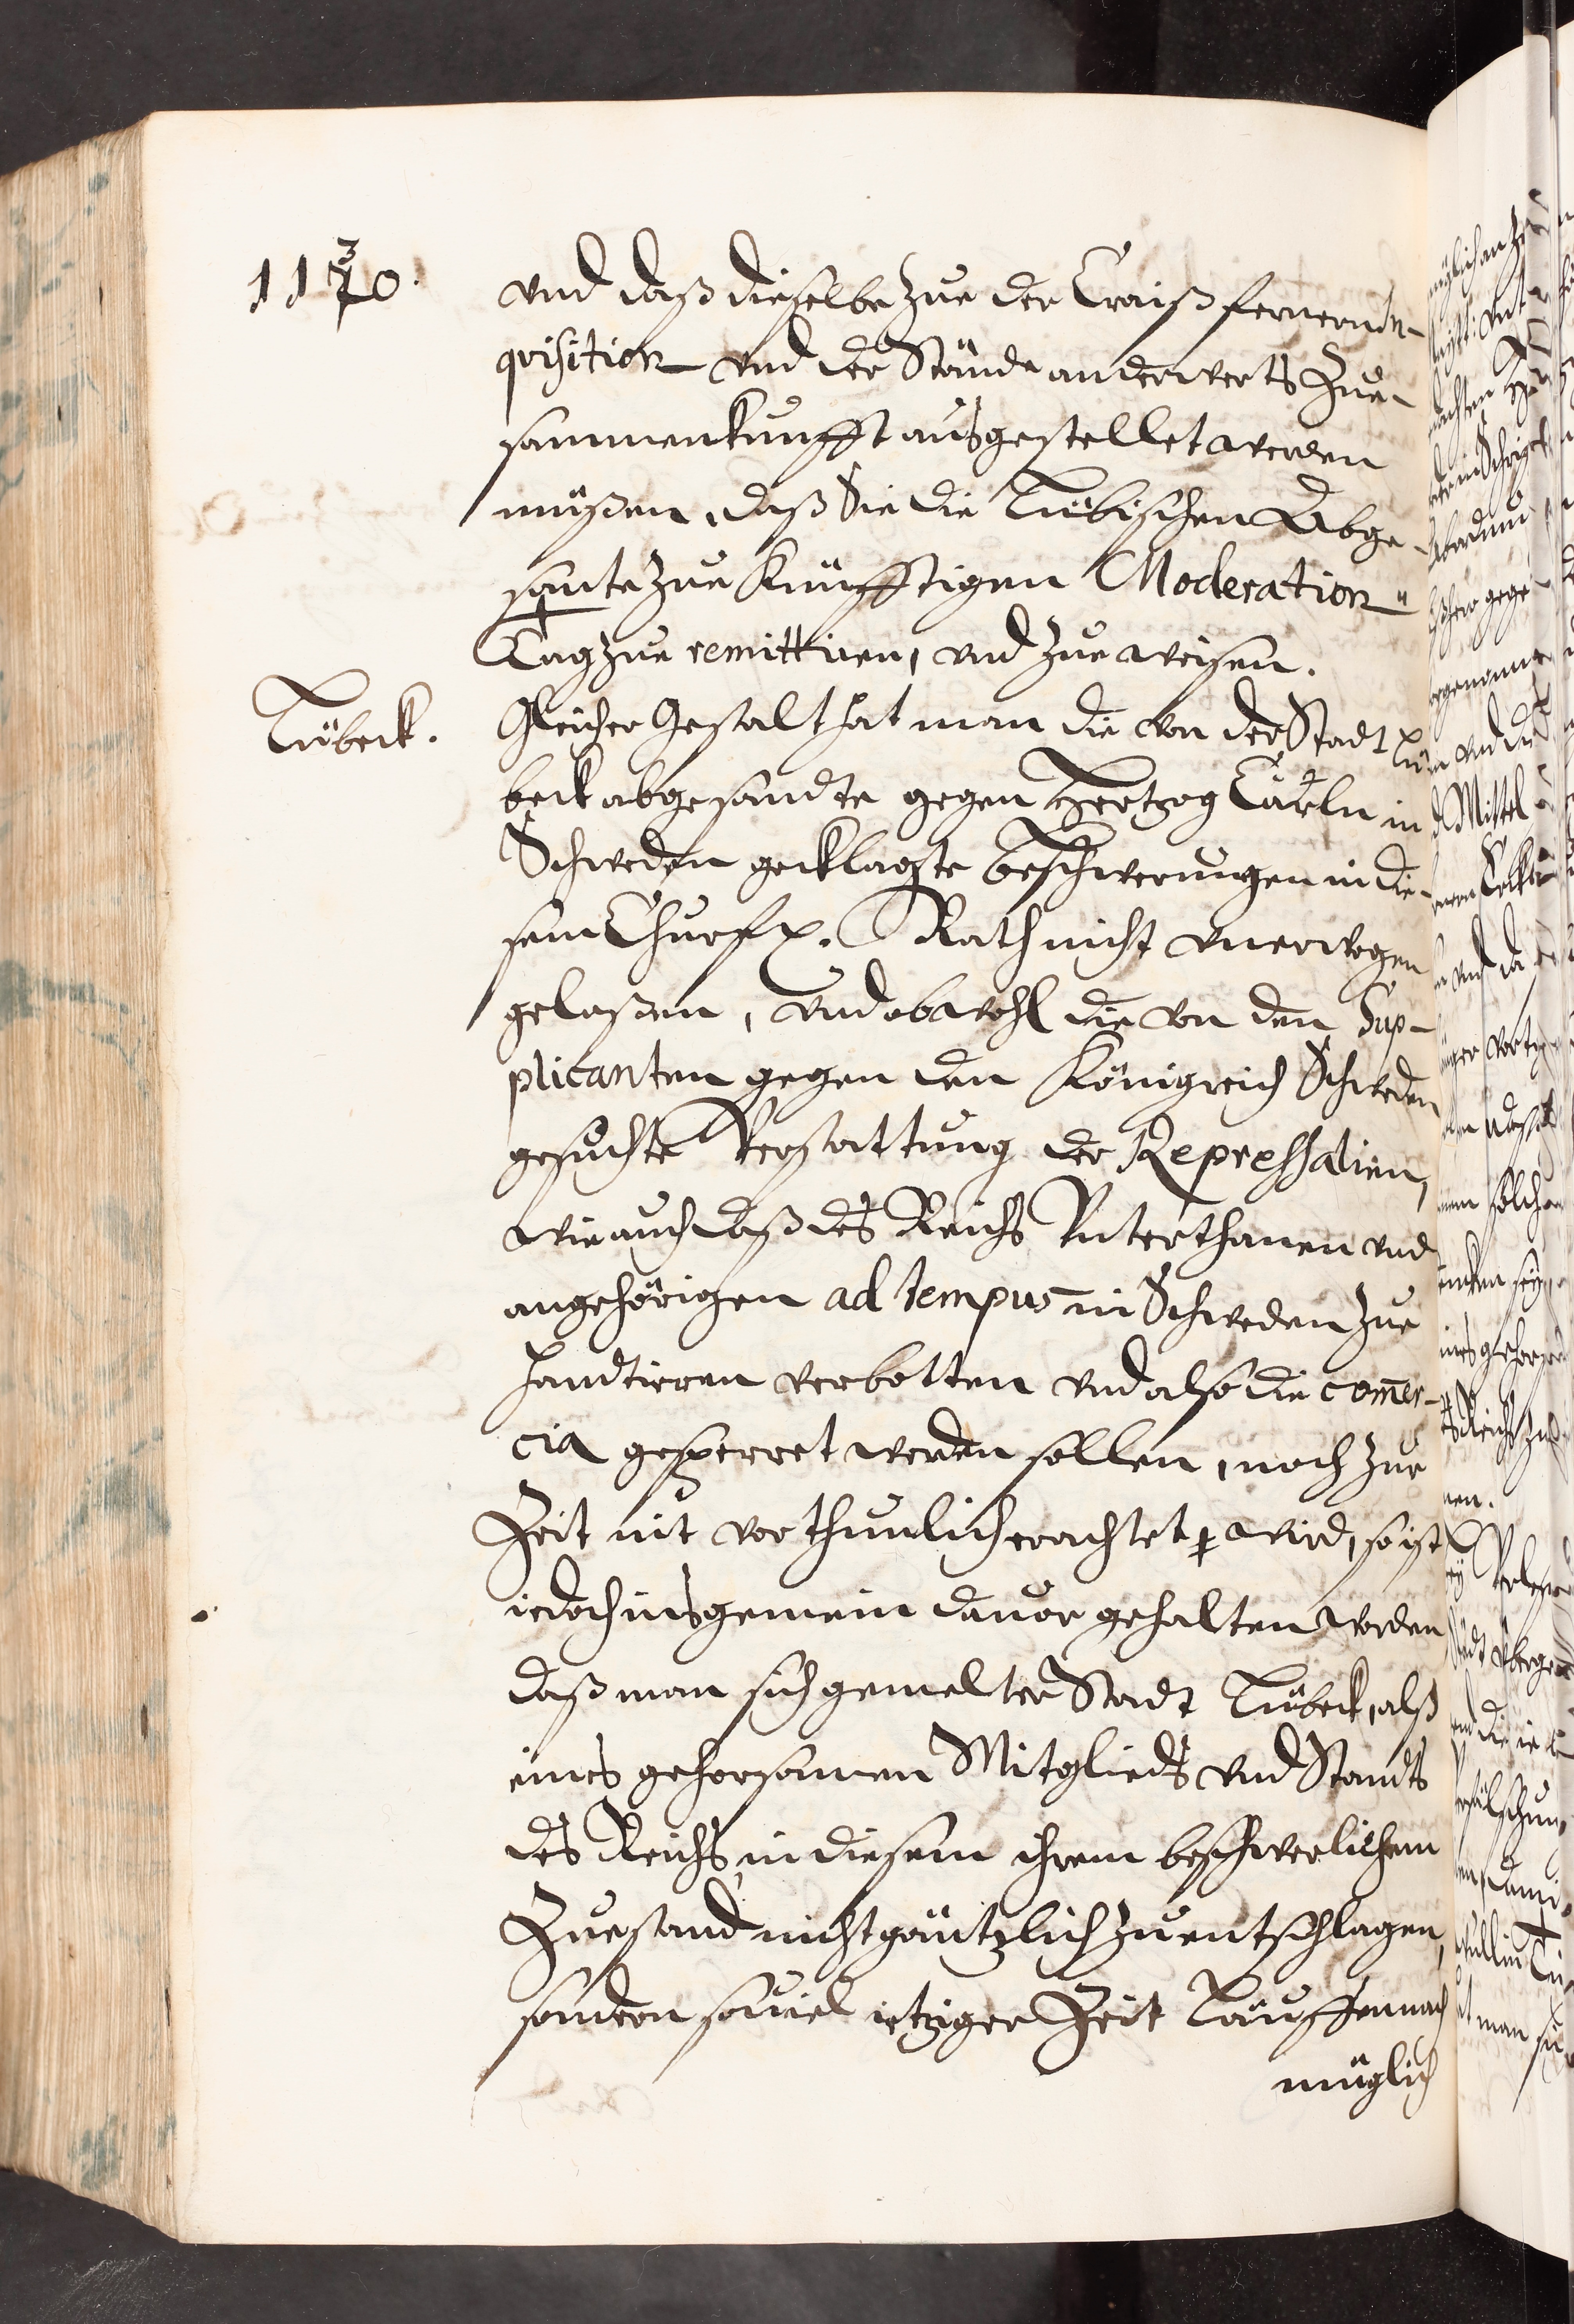 1130.
vnd daß dieselbe zue der Craiß fernern In-
quisition vnd der Stände anderwerts Zue-
sammenkunfft ausgestellet werden
müßen, daß Sie die Lübischen Abge-
sante zue künfftigen Moderation
Tag zue remittiren, vnd zue weisen.
Lübeck.
Gleicher gestalt hat man die von der Stadt Lü-
beck abgesandte gegen Hertzog Carln in
Schweden geklagte beschwerungen in die-
sem Churf. Rath nicht vnerwogen
gelaßen, vnd obwohl die von den Sup-
plicanten gegen den Königreich Schweden
gesuchte Verstattung der Repressalien,
wie auch daß des Reichs Vnterthanen vnd
angehörigen ad tempus in Schweden zue
handtieren verbotten vnd also die comer-
cia gesperret werden sollen, noch zur
Zeit nit vorthunlich erachtet wird, so ist
iedoch insgemein dauor gehalten worden
daß man sich gemelter Stadt Lübeck, alß
eines gehorsamen Mitglieds vnd Standts
des Reichs, in diesem ihrem beschwerlichem
Zuestand nicht gäntzlich zu entschlagen,
sondern souiel ietziger Zeit Läufften nach
müglich